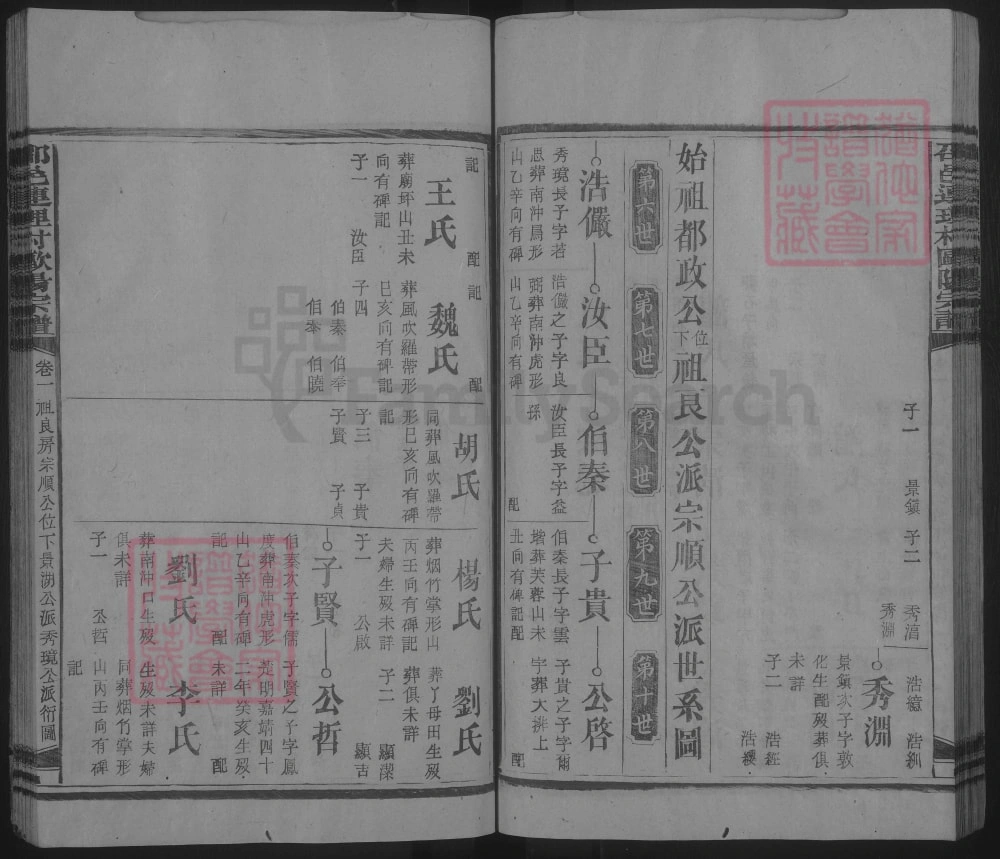 子一　景鎮　子二　秀濱　浩繶　浩釧
秀淵
秀淵
景鎮次子字敦
化生配殁葬俱
未詳
子二　浩鉦
浩纓
始祖都政公位下祖良公派宗順公派世系圖
第六世　第七世　第八世　第九世　第十世
浩儼　汝臣　伯秦　子貴　公啓
秀境長子字若
思葬南沖鳳形
山乙辛向有碑
浩儼之子字良
弼葬南沖虎形
山乙辛向有碑
汝臣長子字益
孫
配
伯秦長子字雲
堦葬芙蓉山未
丑向有碑記配
子貴之子字爾
字葬大排上
配
記
王氏
配
葬廟坪山丑未
向有碑記
子一　汝臣
記
魏氏
配
葬風吹羅帶形
巳亥向有碑記
子四
伯秦　伯奉
伯泰　伯曉
胡氏
同葬風吹羅帶
形巳亥向有碑
記
子三　子貴
子賢　子貞
楊氏
葬烟竹掌形山
丙壬向有碑記
夫婦生殁未詳
子一　公啟
劉氏
葬丫母田生殁
葬俱未詳
子二　顯潔
顯吉
子賢　公哲
伯秦次子字儒
度葬南沖虎形
山乙辛向有碑
記　配
子賢之子字鳳
二年癸亥生殁
未詳　配
劉氏
葬南沖口生殁
俱未詳
子一　公哲
李氏
生殁未詳夫婦
同葬烟竹掌形
山丙壬向有碑
記
邵邑連理村歐陽宗譜
卷一　祖良房宗順公位下景湖公派秀境公派衍圖
FamilySearch